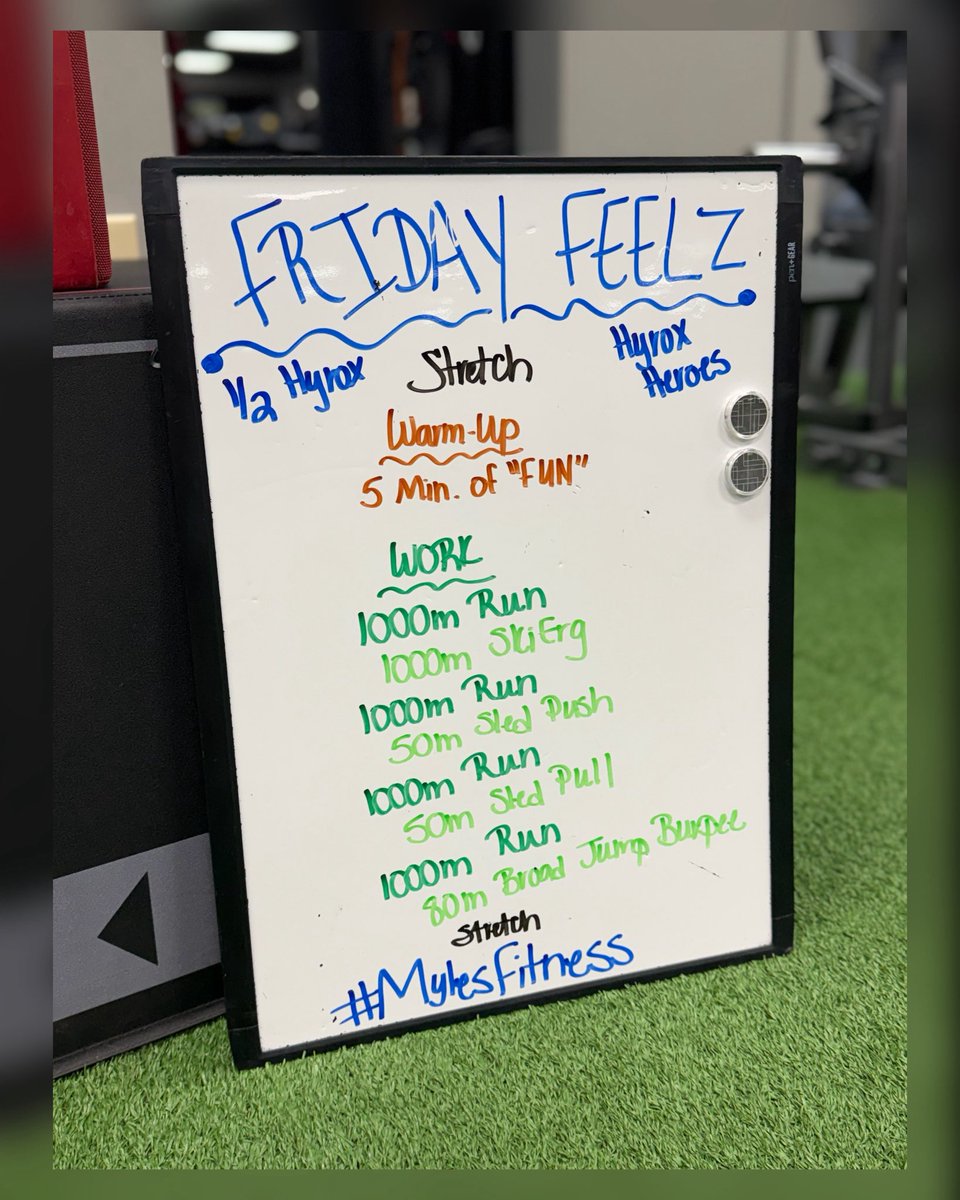 FRIDAY FEELZ
1/2 Hyrox
Stretch
Hyrox
Heroes
Warm-Up
5 Min. of "FUN"
WORK
1000m Run
1000m SkiErg
1000m Run
50m Sled Push
1000m Run
50m Sled Pull
1000m Run
80m Broad Jump Burpee
Stretch
#MylesFitness
pen+GEAR